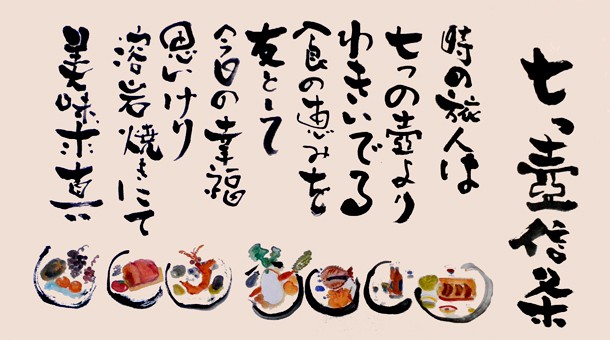 七つ壺信条
時の旅人は
七つの壺より
わきいでる
食の恵みを
友として
今日の幸福
思いけり
溶岩焼きにて
美味求真